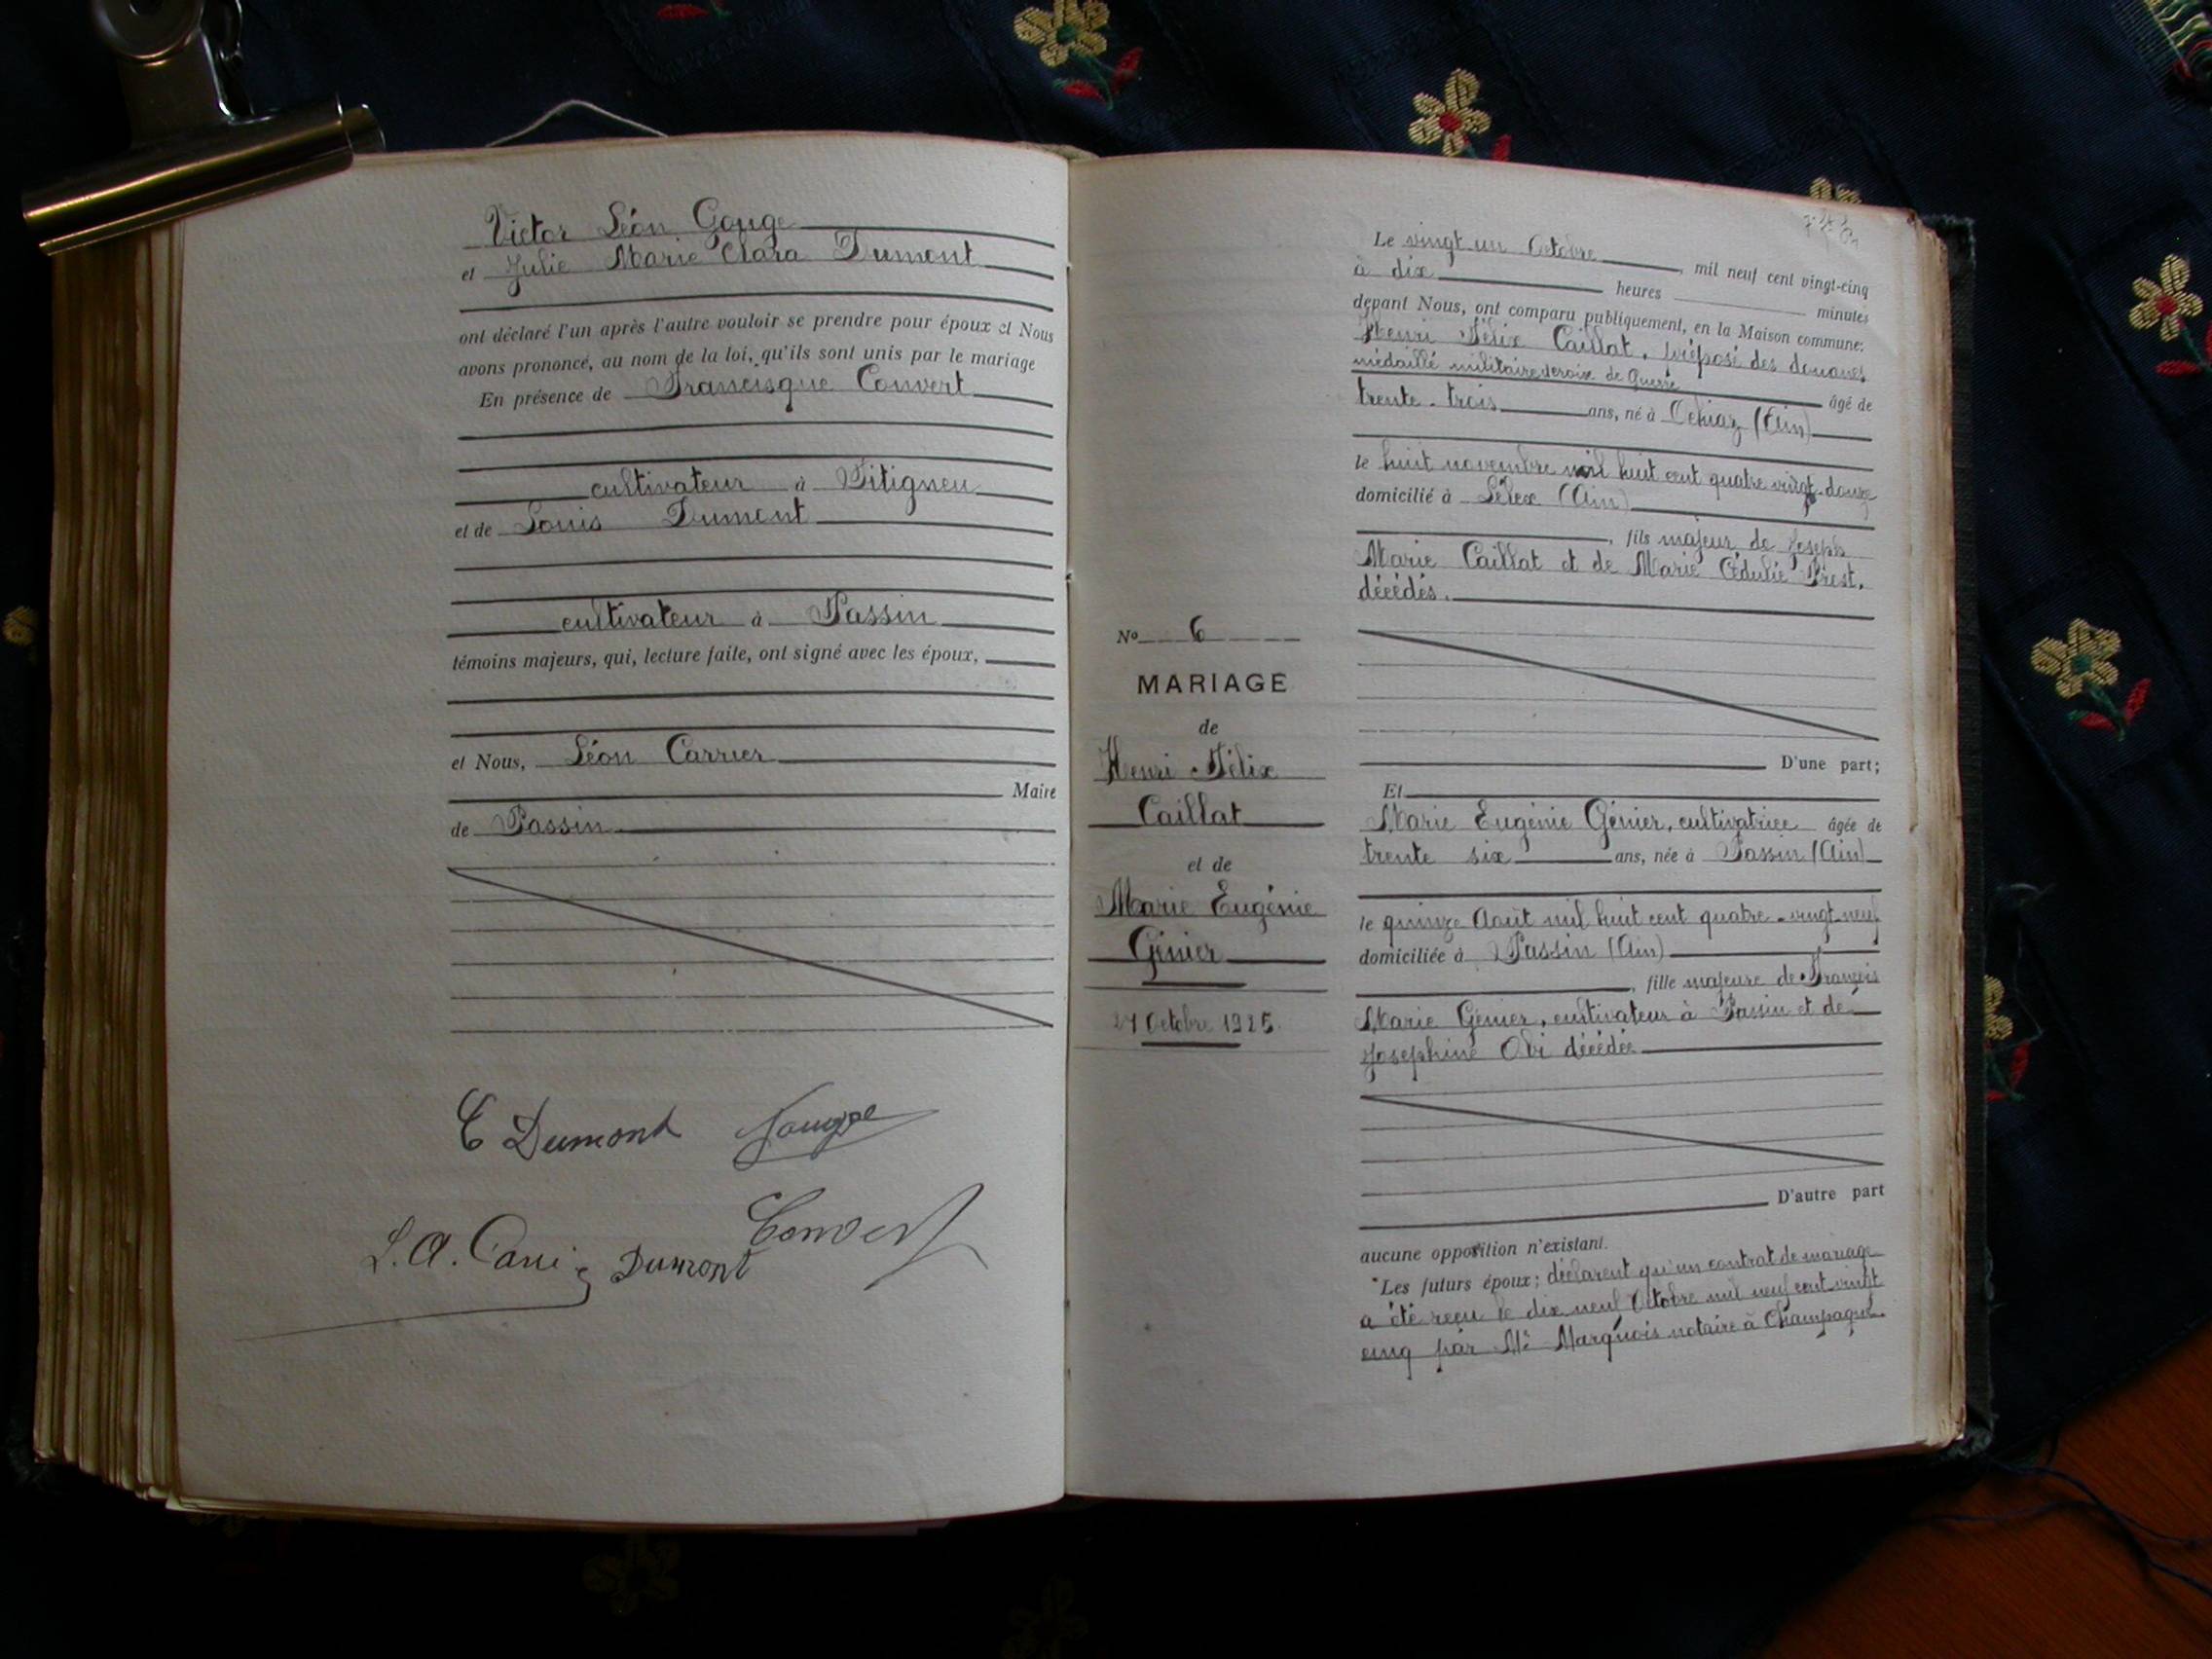 Victor Léon Gouge
et Julie Marie Clara Dumont
ont déclaré l'un après l'autre vouloir se prendre pour époux et Nous
avons prononcé, au nom de la loi, qu'ils sont unis par le mariage
En présence de Francisque Convert
cultivateur à Pitigneu
et de Louis Dumont
cultivateur à Passin
témoins majeurs, qui, lecture faite, ont signé avec les époux,
et Nous, Léon Carrier
Maire
de Passin
C Dumont Gouge
Convert
L. A. Carrier Dumont
Le vingt un Octobre, mil neuf cent vingt-cinq
à dix heures minutes
devant Nous, ont comparu publiquement, en la Maison commune:
Henri Félix Caillat, préposé des douanes
médaillé militaire croix de Guerre âgé de
trente-trois ans, né à (Ain)
le huit novembre mil huit cent quatre vingt-douze
domicilié à Lélex (Ain)
, fils majeur de Joseph
Marie Caillat et de Marie Prost,
décédés.
No 6
MARIAGE
de
Henri Félix
Caillat
et de
Marie Eugénie
Génier
21 Octobre 1925.
D'une part;
Et
Marie Eugénie Génier, cultivatrice âgée de
trente six ans, née à Passin (Ain)
le quinze Août mil huit cent quatre-vingt-neuf
domiciliée à Passin (Ain)
, fille majeure de François
Marie Génier, cultivateur à Passin et de
Joséphine décédée
D'autre part
aucune opposition n'existant.
Les futurs époux; déclarent qu'un contrat de mariage
a été reçu le dix neuf Octobre mil neuf cent vingt
cinq par Me Marquois notaire à Champagne